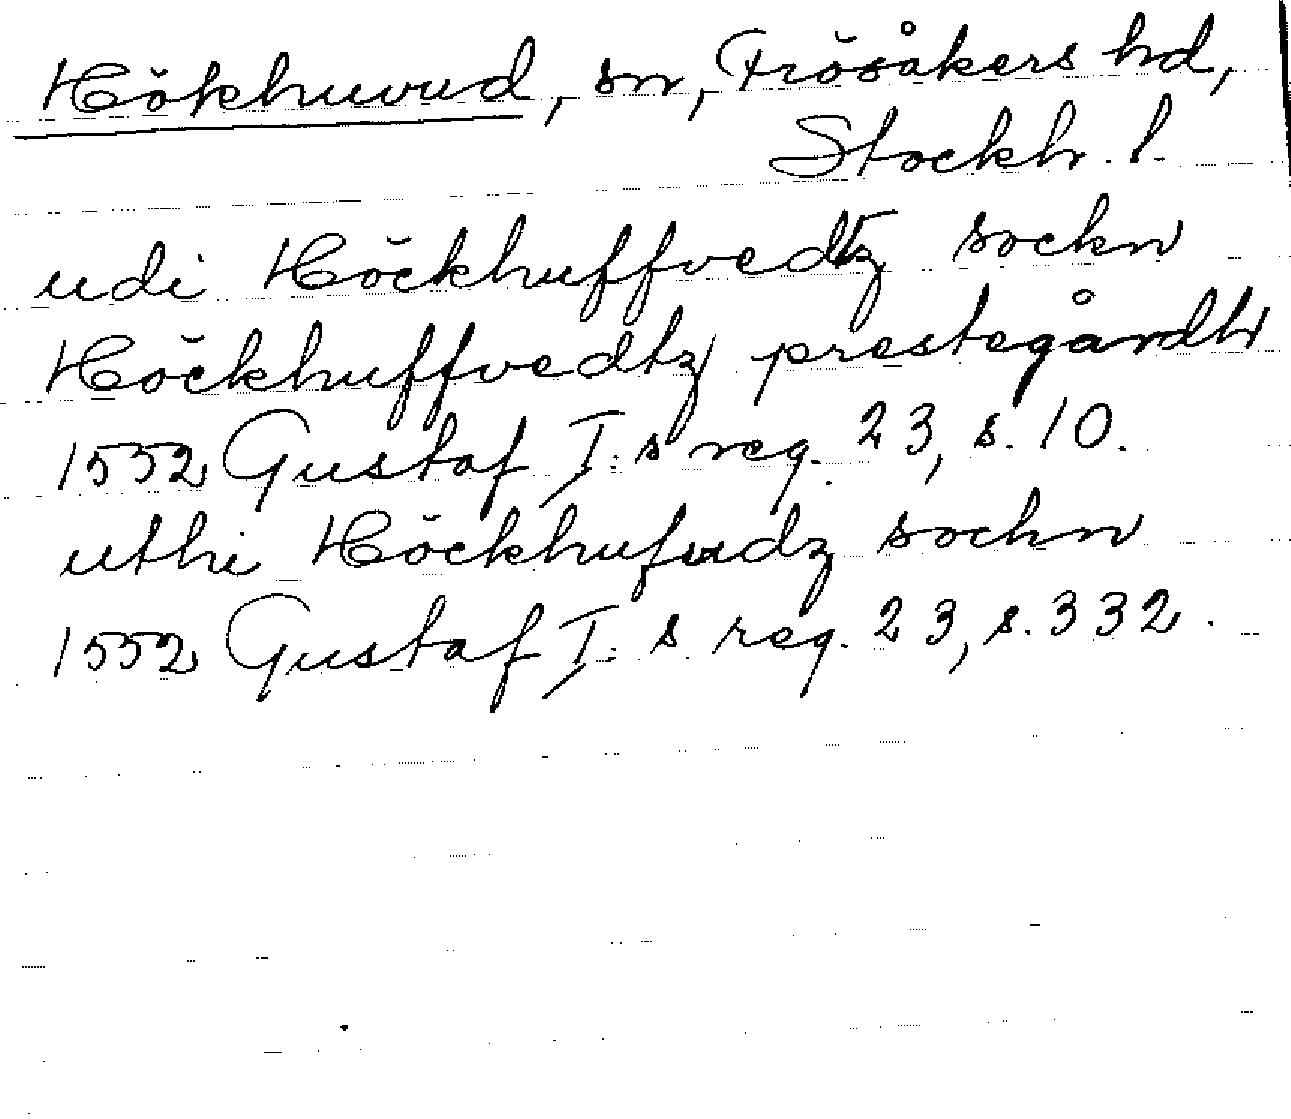 Hökhuvud, sn, Frösåkers hd,
Stockh. l.
udi Höckhuffvedtz sockn
Höckhuffvedtz prestegårdh
1552 Gustaf I:s reg. 23, s. 10.
uthi Höckhufudz sochn
1552 Gustaf I:s reg. 23, s. 332.